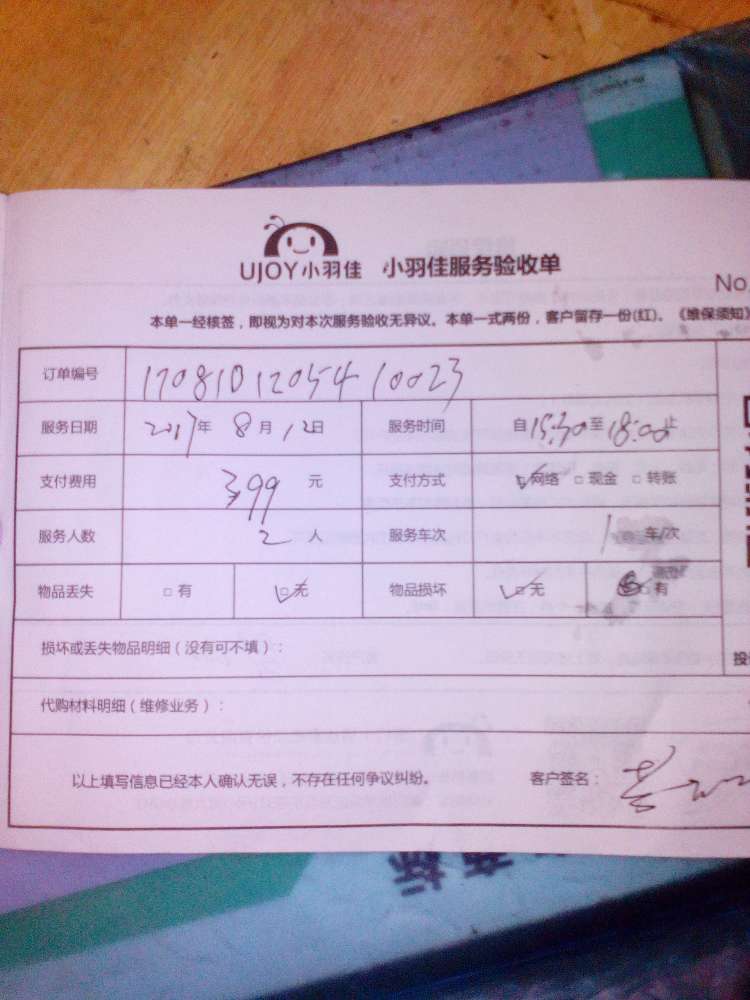 UJOY小羽佳 小羽佳服务验收单
No.
本单一经核签，即视为对本次服务验收无异议。本单一式两份，客户留存一份(红)、《维保须知》
订单编号 17081012054 10023
服务日期 2017年 8月 12日 服务时间 自15:30至18:00止
支付费用 399 元 支付方式 网络 □现金 □转账
服务人数 2人 服务车次 1 车/次
物品丢失 □有 □无 物品损坏 □无 □有
损坏或丢失物品明细（没有可不填）：
投
代购材料明细（维修业务）：
以上填写信息已经本人确认无误，不存在任何争议纠纷。 客户签名：
商标